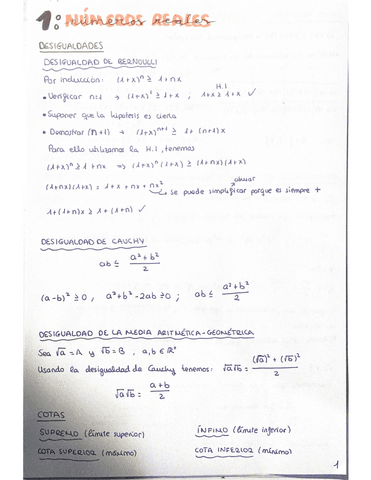 1: NÚMEROS REALES
DESIGUALDADES
DESIGUALDAD DE BERNOULLI
Por inducción: (1+x)ⁿ ≥ 1+nx
• Verificar n=1 → (1+x)¹ ≥ 1+x ; 1+x ≥ 1+x ✓
H.I
• Suponer que la hipótesis es cierta
• Demostrar (n+1) → (1+x)ⁿ⁺¹ ≥ 1+(n+1)x
Para ello utilizamos la H.I, tenemos
(1+x)ⁿ ≥ 1+nx ⇒ (1+x)ⁿ(1+x) ≥ (1+nx)(1+x)
(1+nx)(1+x) = 1+x+nx+nx²
↳ Se puede simplificar porque es siempre +
1+(1+n)x ≥ 1+(1+n) ✓
DESIGUALDAD DE CAUCHY
ab ≤ (a²+b²)/2
(a-b)² ≥ 0 , a²+b²-2ab ≥ 0 ; ab ≤ (a²+b²)/2
DESIGUALDAD DE LA MEDIA ARITMÉTICA-GEOMÉTRICA
Sea √a = A y √b = B , a,b ∈ ℝ⁺
Usando la desigualdad de Cauchy tenemos: √a√b = ((√a)²+(√b)²)/2
√a√b = (a+b)/2
COTAS
SUPREMO (límite superior) ÍNFIMO (límite inferior)
COTA SUPERIOR (máximo) COTA INFERIOR (mínimo)
1